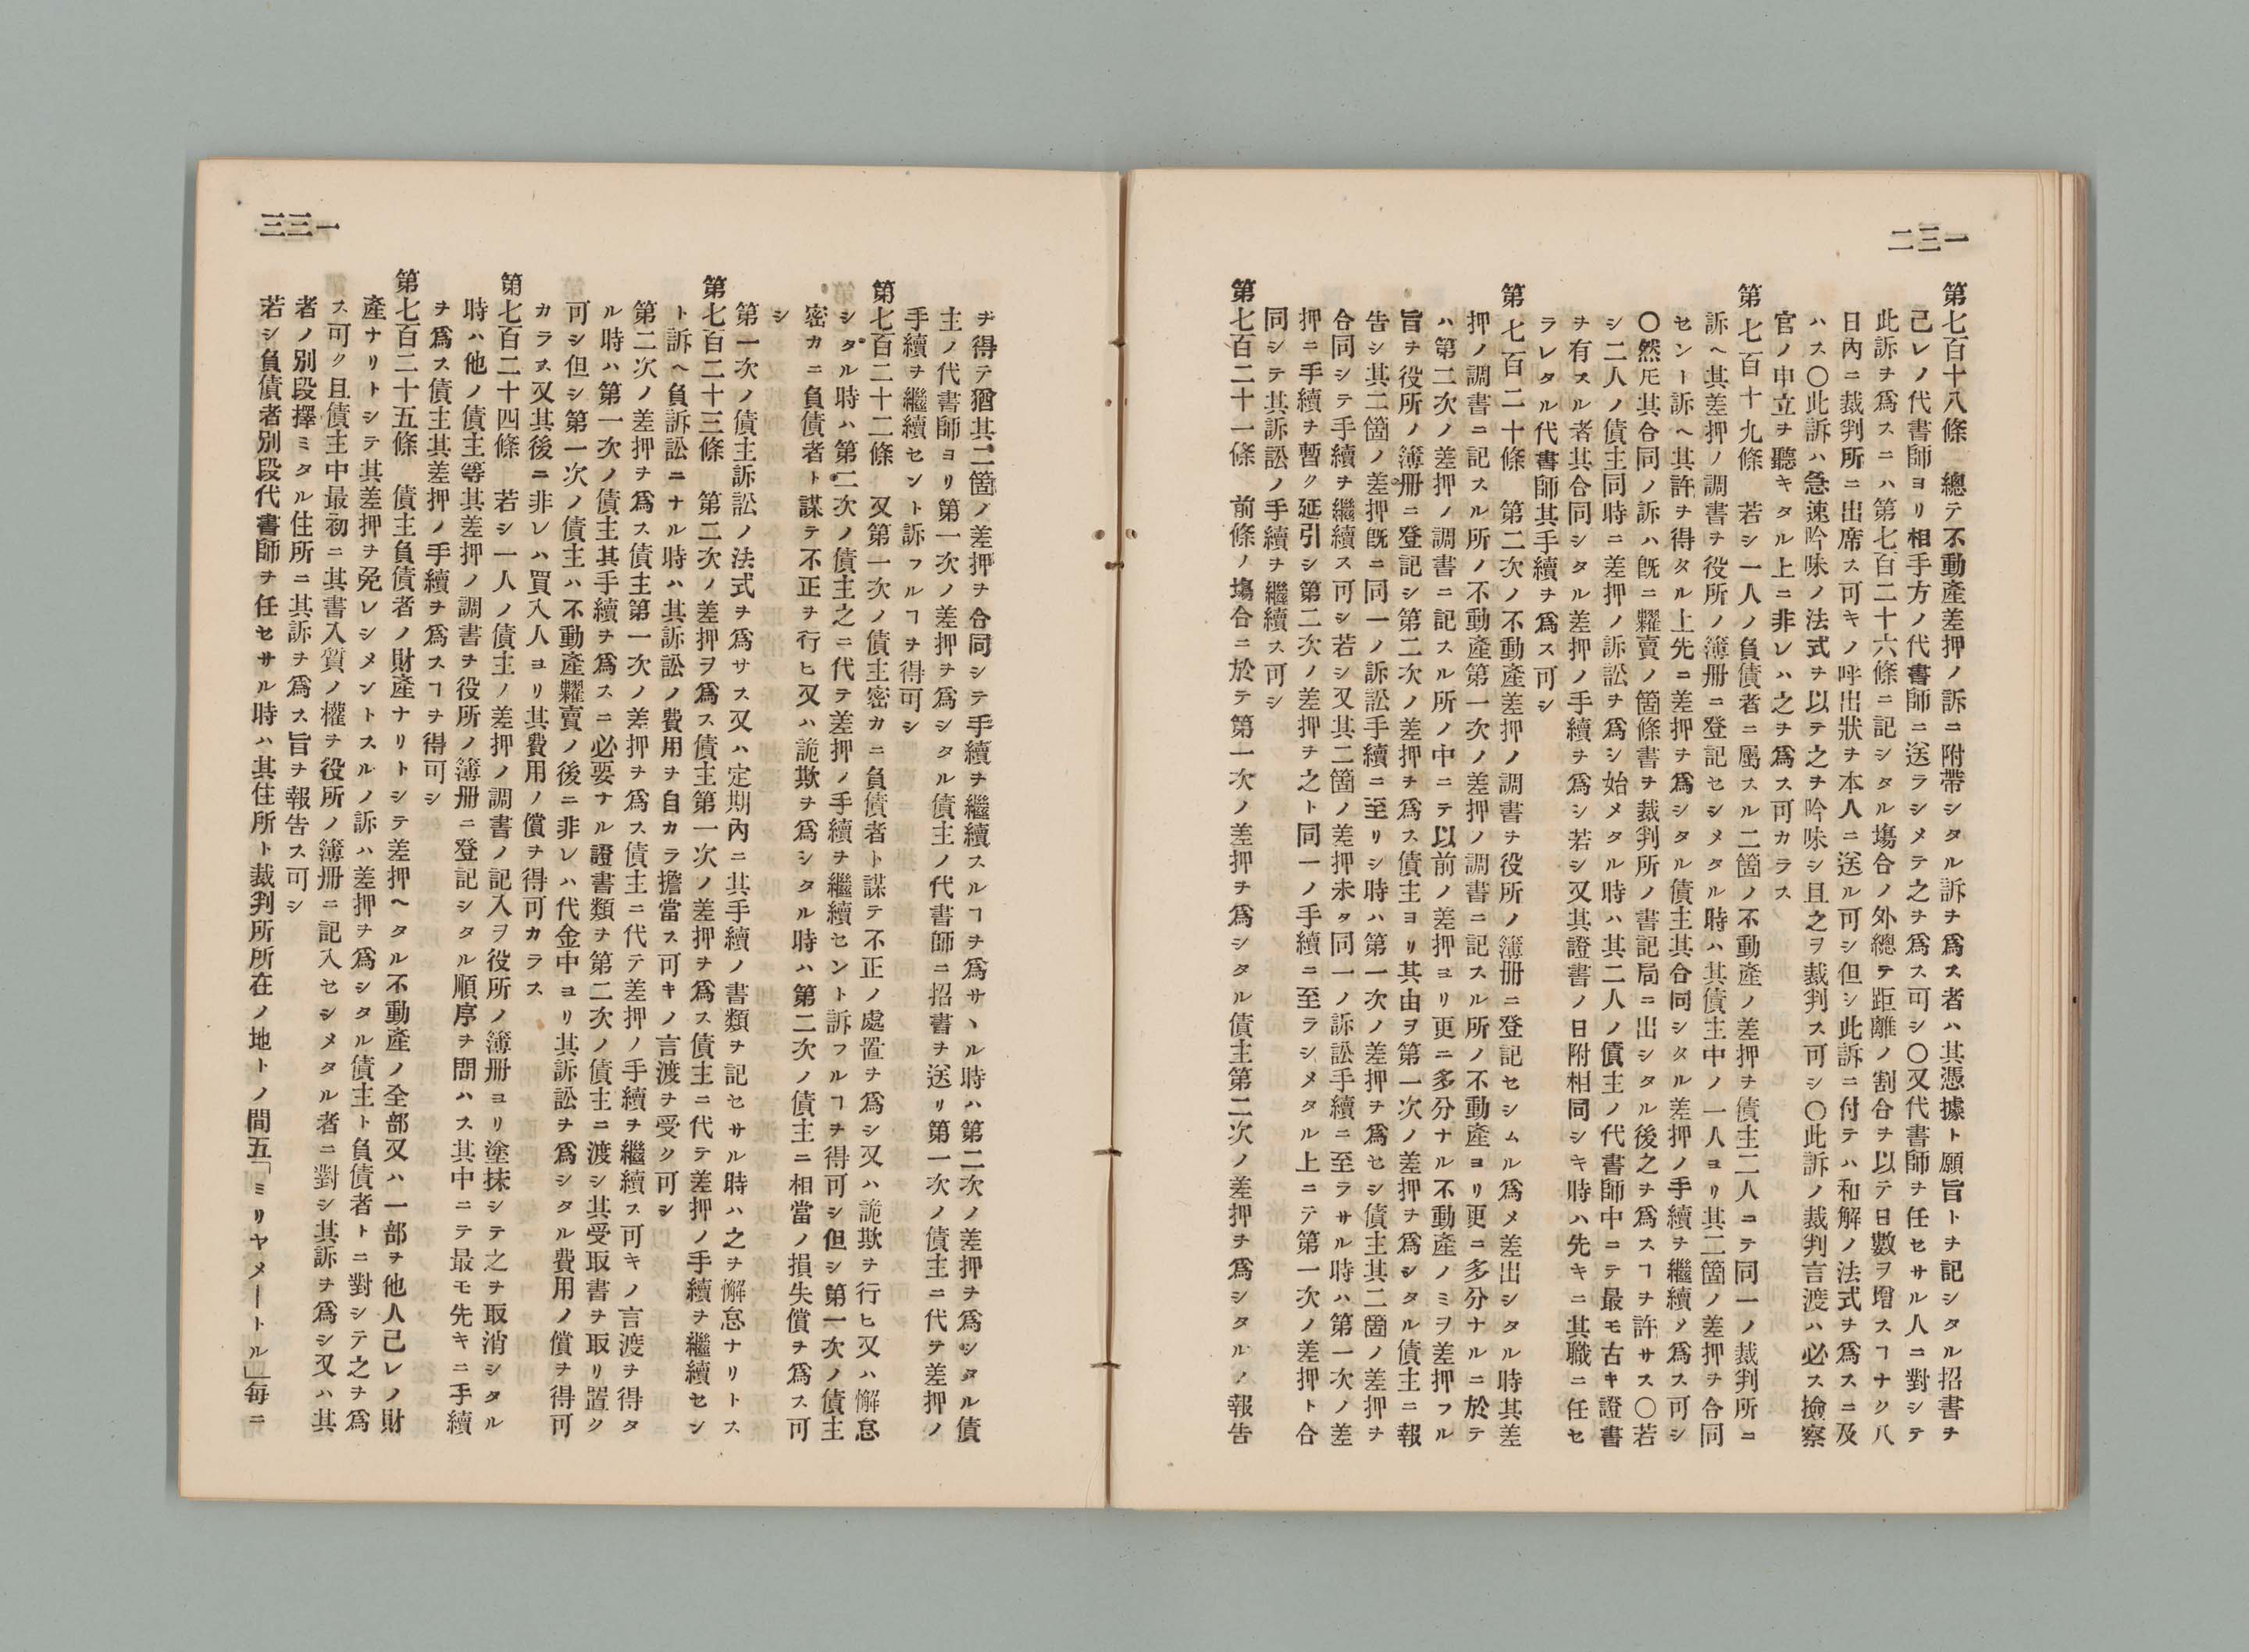 一三二
第七百十八條　總テ不動產差押ノ訴ニ附帶シタル訴ヲ爲ス者ハ其憑據ト願旨トヲ記シタル招書ヲ
己レノ代書師ヨリ相手方ノ代書師ニ送ラシメテ之ヲ爲ス可シ〇又代書師ヲ任セサル人ニ對シテ
此訴ヲ爲スニハ第七百二十六條ニ記シタル塲合ノ外總テ距離ノ割合ヲ以テ日數ヲ增スヿナク八
日內ニ裁判所ニ出席ス可キノ呼出狀ヲ本人ニ送ル可シ但シ此訴ニ付テハ和解ノ法式ヲ爲スニ及
ハス〇此訴ハ急速吟味ノ法式ヲ以テ之ヲ吟味シ且之ヲ裁判ス可シ〇此訴ノ裁判言渡ハ必ス撿察
官ノ申立ヲ聽キタル上ニ非レハ之ヲ爲ス可カラス
第七百十九條　若シ一人ノ負債者ニ屬スル二箇ノ不動產ノ差押ヲ債主二人ニテ同一ノ裁判所ニ
訴ヘ其差押ノ調書ヲ役所ノ簿册ニ登記セシメタル時ハ其債主中ノ一人ヨリ其二箇ノ差押ヲ合同
セント訴ヘ其許ヲ得タル上先ニ差押ヲ爲シタル債主其合同シタル差押ノ手續ヲ繼續ノ爲ス可シ
〇然𪜈其合同ノ訴ハ旣ニ糶賣ノ箇條書ヲ裁判所ノ書記局ニ出シタル後之ヲ爲スヿヲ許サス〇若
シ二人ノ債主同時ニ差押ノ訴訟ヲ爲シ始メタル時ハ其二人ノ債主ノ代書師中ニテ最モ古キ證書
ヲ有スル者其合同シタル差押ノ手續ヲ爲シ若シ又其證書ノ日附相同シキ時ハ先キニ其職ニ任セ
ラレタル代書師其手續ヲ爲ス可シ
第七百二十條　第二次ノ不動產差押ノ調書ヲ役所ノ簿册ニ登記セシムル爲メ差出シタル時其差
押ノ調書ニ記スル所ノ不動產第一次ノ差押ノ調書ニ記スル所ノ不動產ヨリ更ニ多分ナルニ於テ
ハ第二次ノ差押ノ調書ニ記スル所ノ中ニテ以前ノ差押ヨリ更ニ多分ナル不動產ノミヲ差押フル
旨ヲ役所ノ簿册ニ登記シ第二次ノ差押ヲ爲ス債主ヨリ其由ヲ第一次ノ差押ヲ爲シタル債主ニ報
告シ其二箇ノ差押旣ニ同一ノ訴訟手續ニ至リシ時ハ第一次ノ差押ヲ爲セシ債主其二箇ノ差押ヲ
合同シテ手續ヲ繼續ス可シ若シ又其二箇ノ差押未タ同一ノ訴訟手續ニ至ラサル時ハ第一次ノ差
押ニ手續ヲ暫ク延引シ第二次ノ差押ヲ之ト同一ノ手續ニ至ラシメタル上ニテ第一次ノ差押ト合
同シテ其訴訟ノ手續ヲ繼續ス可シ
第七百二十一條　前條ノ塲合ニ於テ第一次ノ差押ヲ爲シタル債主第二次ノ差押ヲ爲シタルノ報告
一三三
ヲ得テ猶其二箇ノ差押ヲ合同シテ手續ヲ繼續スルヿヲ爲サヽル時ハ第二次ノ差押ヲ爲シタル債
主ノ代書師ヨリ第一次ノ差押ヲ爲シタル債主ノ代書師ニ招書ヲ送リ第一次ノ債主ニ代テ差押ノ
手續ヲ繼續セント訴フルヿヲ得可シ
第七百二十二條　又第一次ノ債主密カニ負債者ト謀テ不正ノ處置ヲ爲シ又ハ詭欺ヲ行ヒ又ハ懈怠
シタル時ハ第二次ノ債主之ニ代テ差押ノ手續ヲ繼續セント訴フルヿヲ得可シ但シ第一次ノ債主
密カニ負債者ト謀テ不正ヲ行ヒ又ハ詭欺ヲ爲シタル時ハ第二次ノ債主ニ相當ノ損失償ヲ爲ス可
シ
第一次ノ債主訴訟ノ法式ヲ爲サス又ハ定期內ニ其手續ノ書類ヲ記セサル時ハ之ヲ懈怠ナリトス
第七百二十三條　第二次ノ差押ヲ爲ス債主第一次ノ差押ヲ爲ス債主ニ代テ差押ノ手續ヲ繼續セン
ト訴ヘ負訴訟ニナル時ハ其訴訟ノ費用ヲ自カラ擔當ス可キノ言渡ヲ受ク可シ
第二次ノ差押ヲ爲ス債主第一次ノ差押ヲ爲ス債主ニ代テ差押ノ手續ヲ繼續ス可キノ言渡ヲ得タ
ル時ハ第一次ノ債主其手續ヲ爲スニ必要ナル證書類ヲ第二次ノ債主ニ渡シ其受取書ヲ取リ置ク
可シ但シ第一次ノ債主ハ不動產糶賣ノ後ニ非レハ代金中ヨリ其訴訟ヲ爲シタル費用ノ償ヲ得可
カラス又其後ニ非レハ買入人ヨリ其費用ノ償ヲ得可カラス
第七百二十四條　若シ一人ノ債主ノ差押ノ調書ノ記入ヲ役所ノ簿册ヨリ塗抹シテ之ヲ取消シタル
時ハ他ノ債主等其差押ノ調書ヲ役所ノ簿册ニ登記シタル順序ヲ問ハス其中ニテ最モ先キニ手續
ヲ爲ス債主其差押ノ手續ヲ爲スヿヲ得可シ
第七百二十五條　債主負債者ノ財產ナリトシテ差押ヘタル不動產ノ全部又ハ一部ヲ他人己レノ財
產ナリトシテ其差押ヲ免レシメントスルノ訴ハ差押ヲ爲シタル債主ト負債者トニ對シテ之ヲ爲
ス可ク且債主中最初ニ其書入質ノ權ヲ役所ノ簿册ニ記入セシメタル者ニ對シ其訴ヲ爲シ又ハ其
者ノ別段擇ミタル住所ニ其訴ヲ爲ス旨ヲ報告ス可シ
若シ負債者別段代書師ヲ任セサル時ハ其住所ト裁判所所在ノ地トノ間五「ミリヤメートル」每ニ